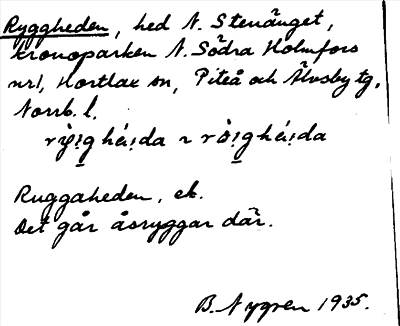 Ryggheden, hed N. Stenänget,
kronoparken N. Södra Holmfors
nr1, Hortlax sn, Piteå och Älvsby tg,
Norrb. l.
Ruggaheden, ek.
Det går åsryggar där.
B. Nygren 1935.